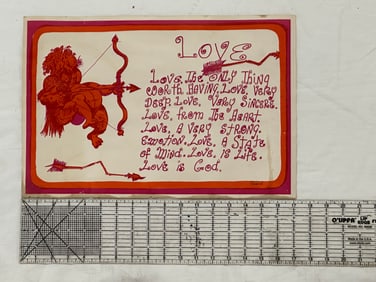 LOVE
Love, The Only Thing
Worth Having, Love, Very
Deep Love, Very Sincere.
Love, from The Heart.
Love, A Very Strong.
Emotion. Love, A State
of Mind. Love, Is Life.
Love is God.
O'LIPFA
LIP
EDGE
Made in the U.S.A.